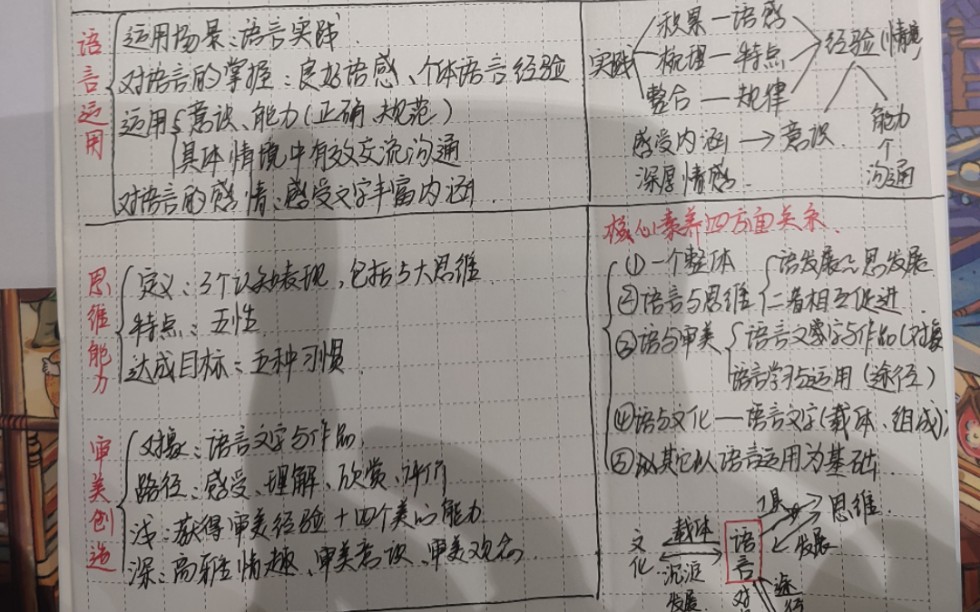 语言运用
运用场景：语言实践
对语言的掌握：良好语感、个体语言经验
运用 意识、能力（正确、规范）
具体情境中有效交流沟通
对语言的感情：感受文字丰富内涵
思维能力
定义：3个认知表现，包括5大思维
特点：五性
达成目标：五种习惯
审美创造
对象：语言文字与作品
路径：感受、理解、欣赏、评价
浅：获得审美经验+四个美的能力
深：高雅情趣、审美意识、审美观念
积累—语感
实践 梳理—特点 经验（情境）
整合—规律
感受内涵→意识 能力
深厚情感 个
沟通
核心素养四方面关系
①一个整体
②语言与思维 语发展≈思发展
二者相互促进
③语与审美 语言文字与作品（对象
语言学习与运用（途径）
④语与文化—语言文字（载体、组成）
⑤以其它以语言运用为基础
工具 思维
文化 载体 语言 发展
沉淀
发展 对 途径